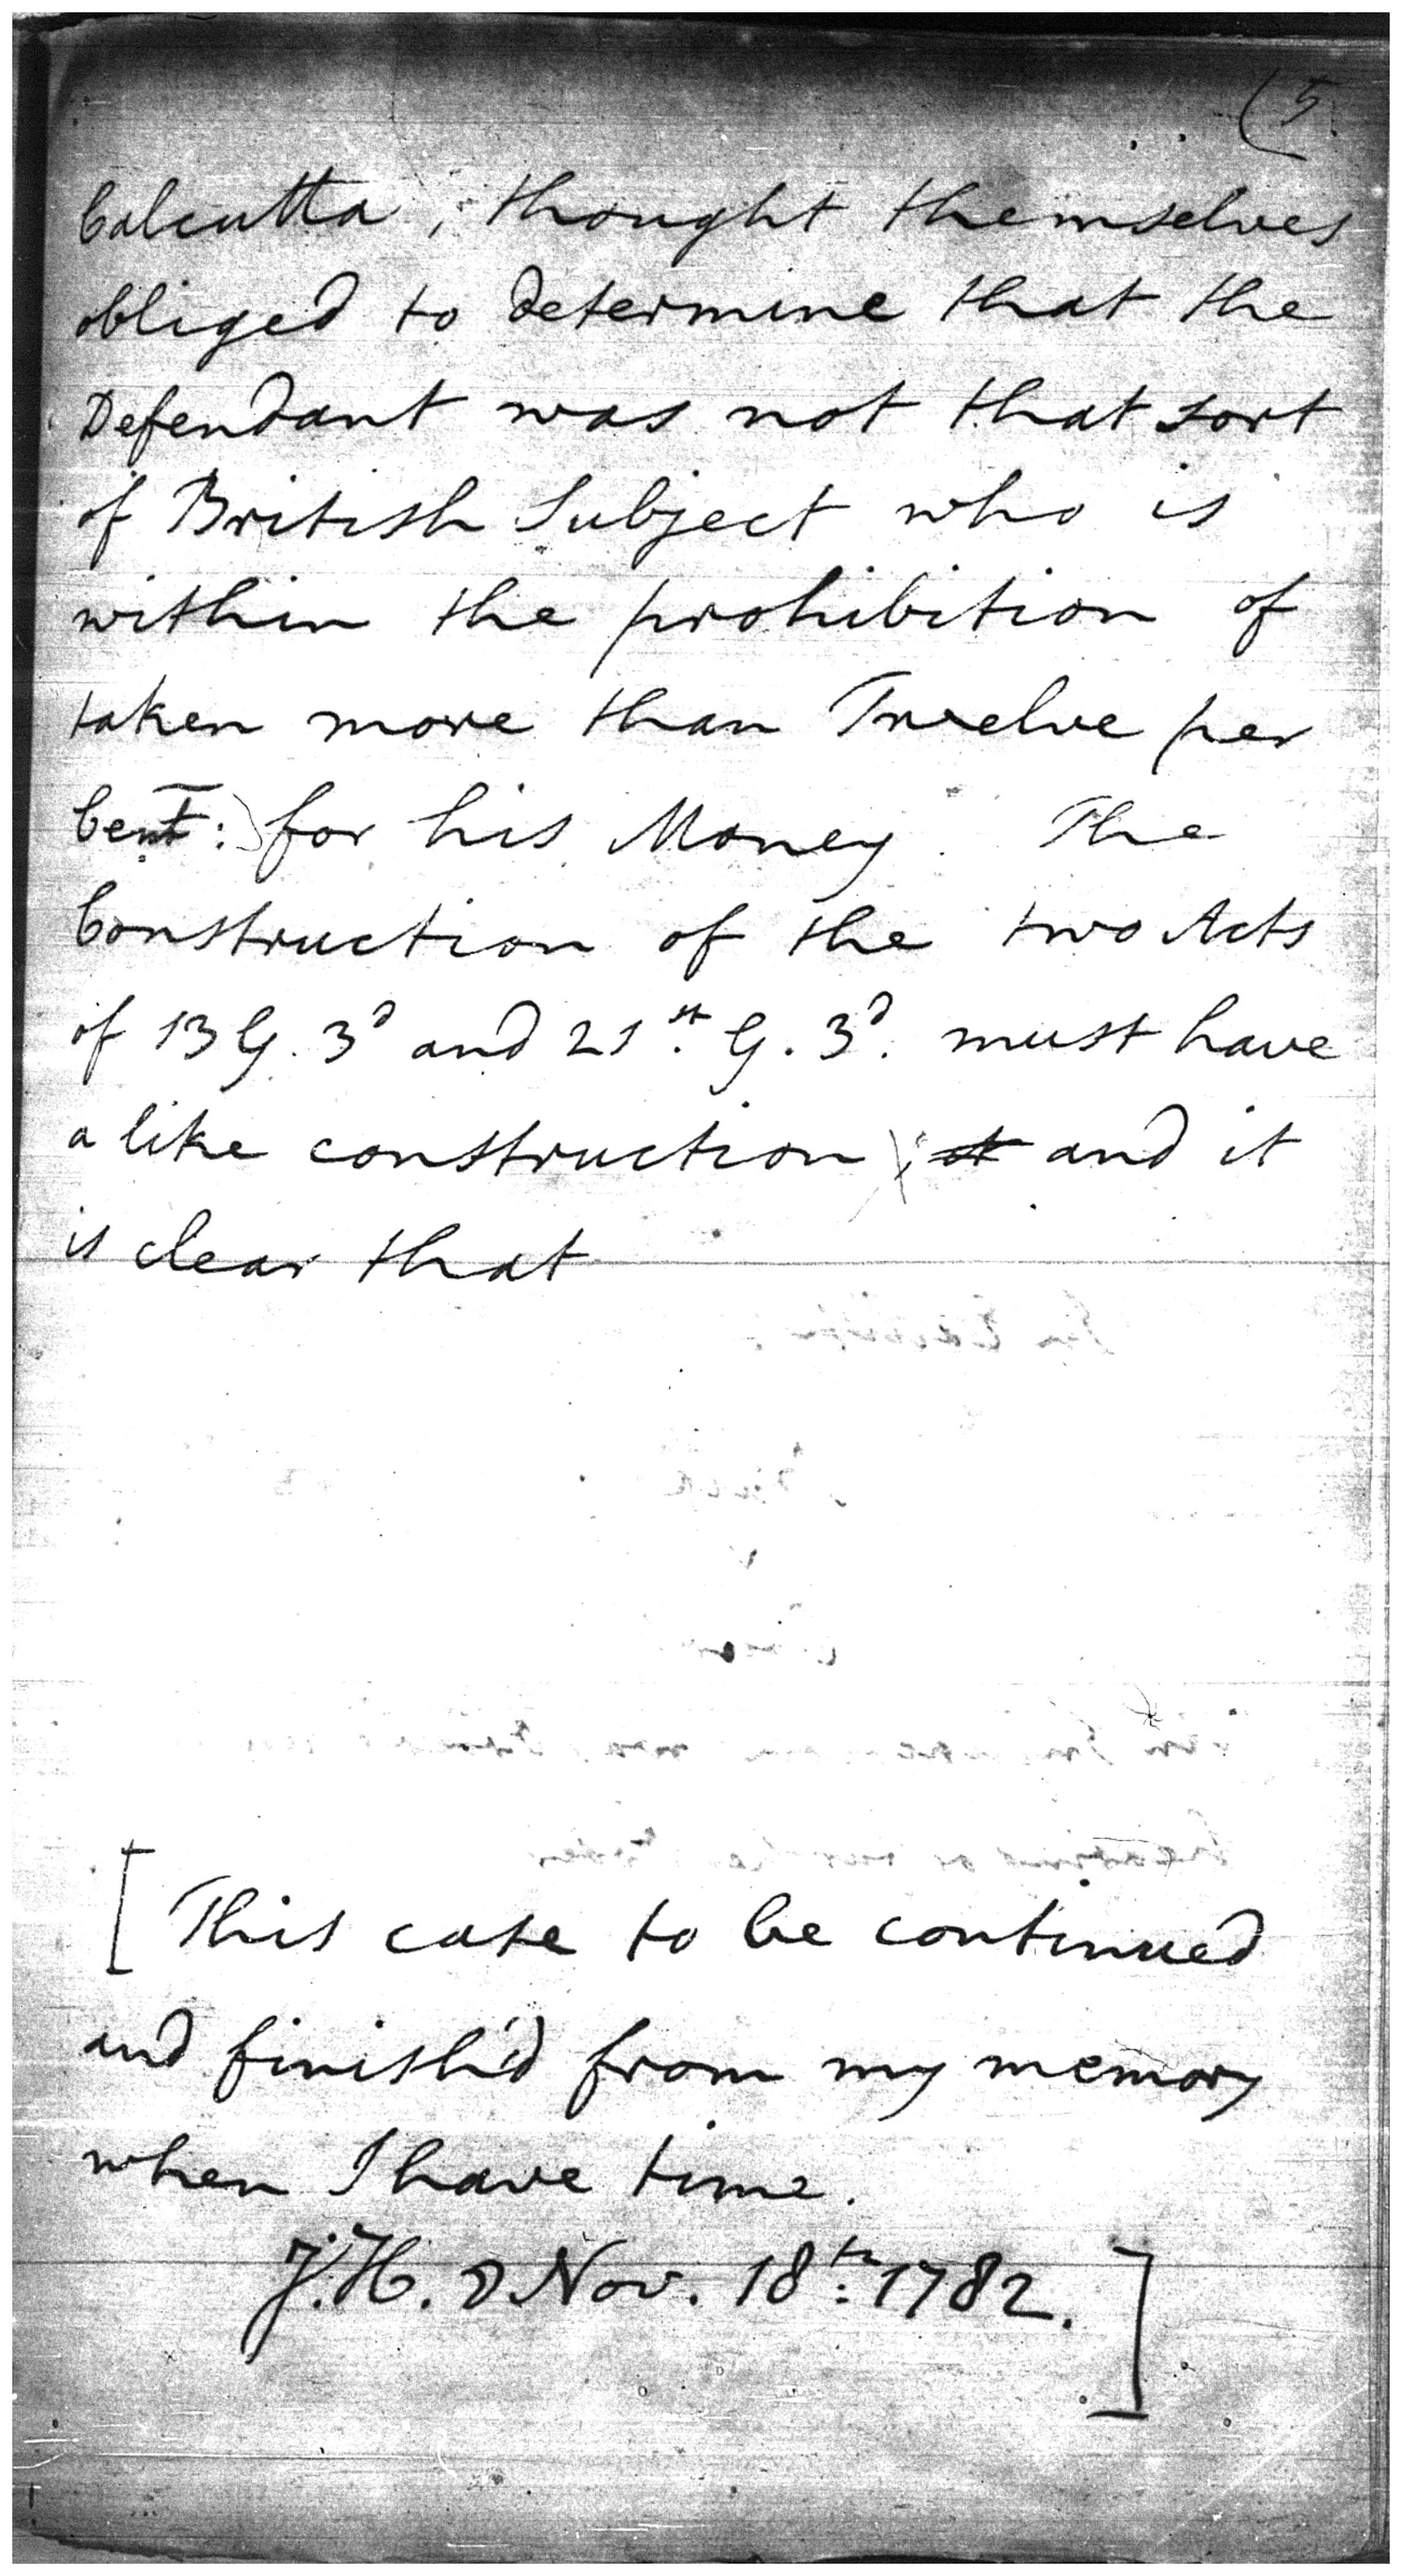 (5
Calcutta, thought themselves
obliged to determine that the
Defendant was not that sort
of British Subject who is
within the prohibition of
taken more than Twelve per
Cent: for his Money. The
Construction of the two Acts
of 13 G. 3d and 21st. G. 3d. must have
a like construction; and it
is clear that
[This case to be continued
and finish'd from my memory
when I have time.
J.H. Nov. 18th: 1782.]